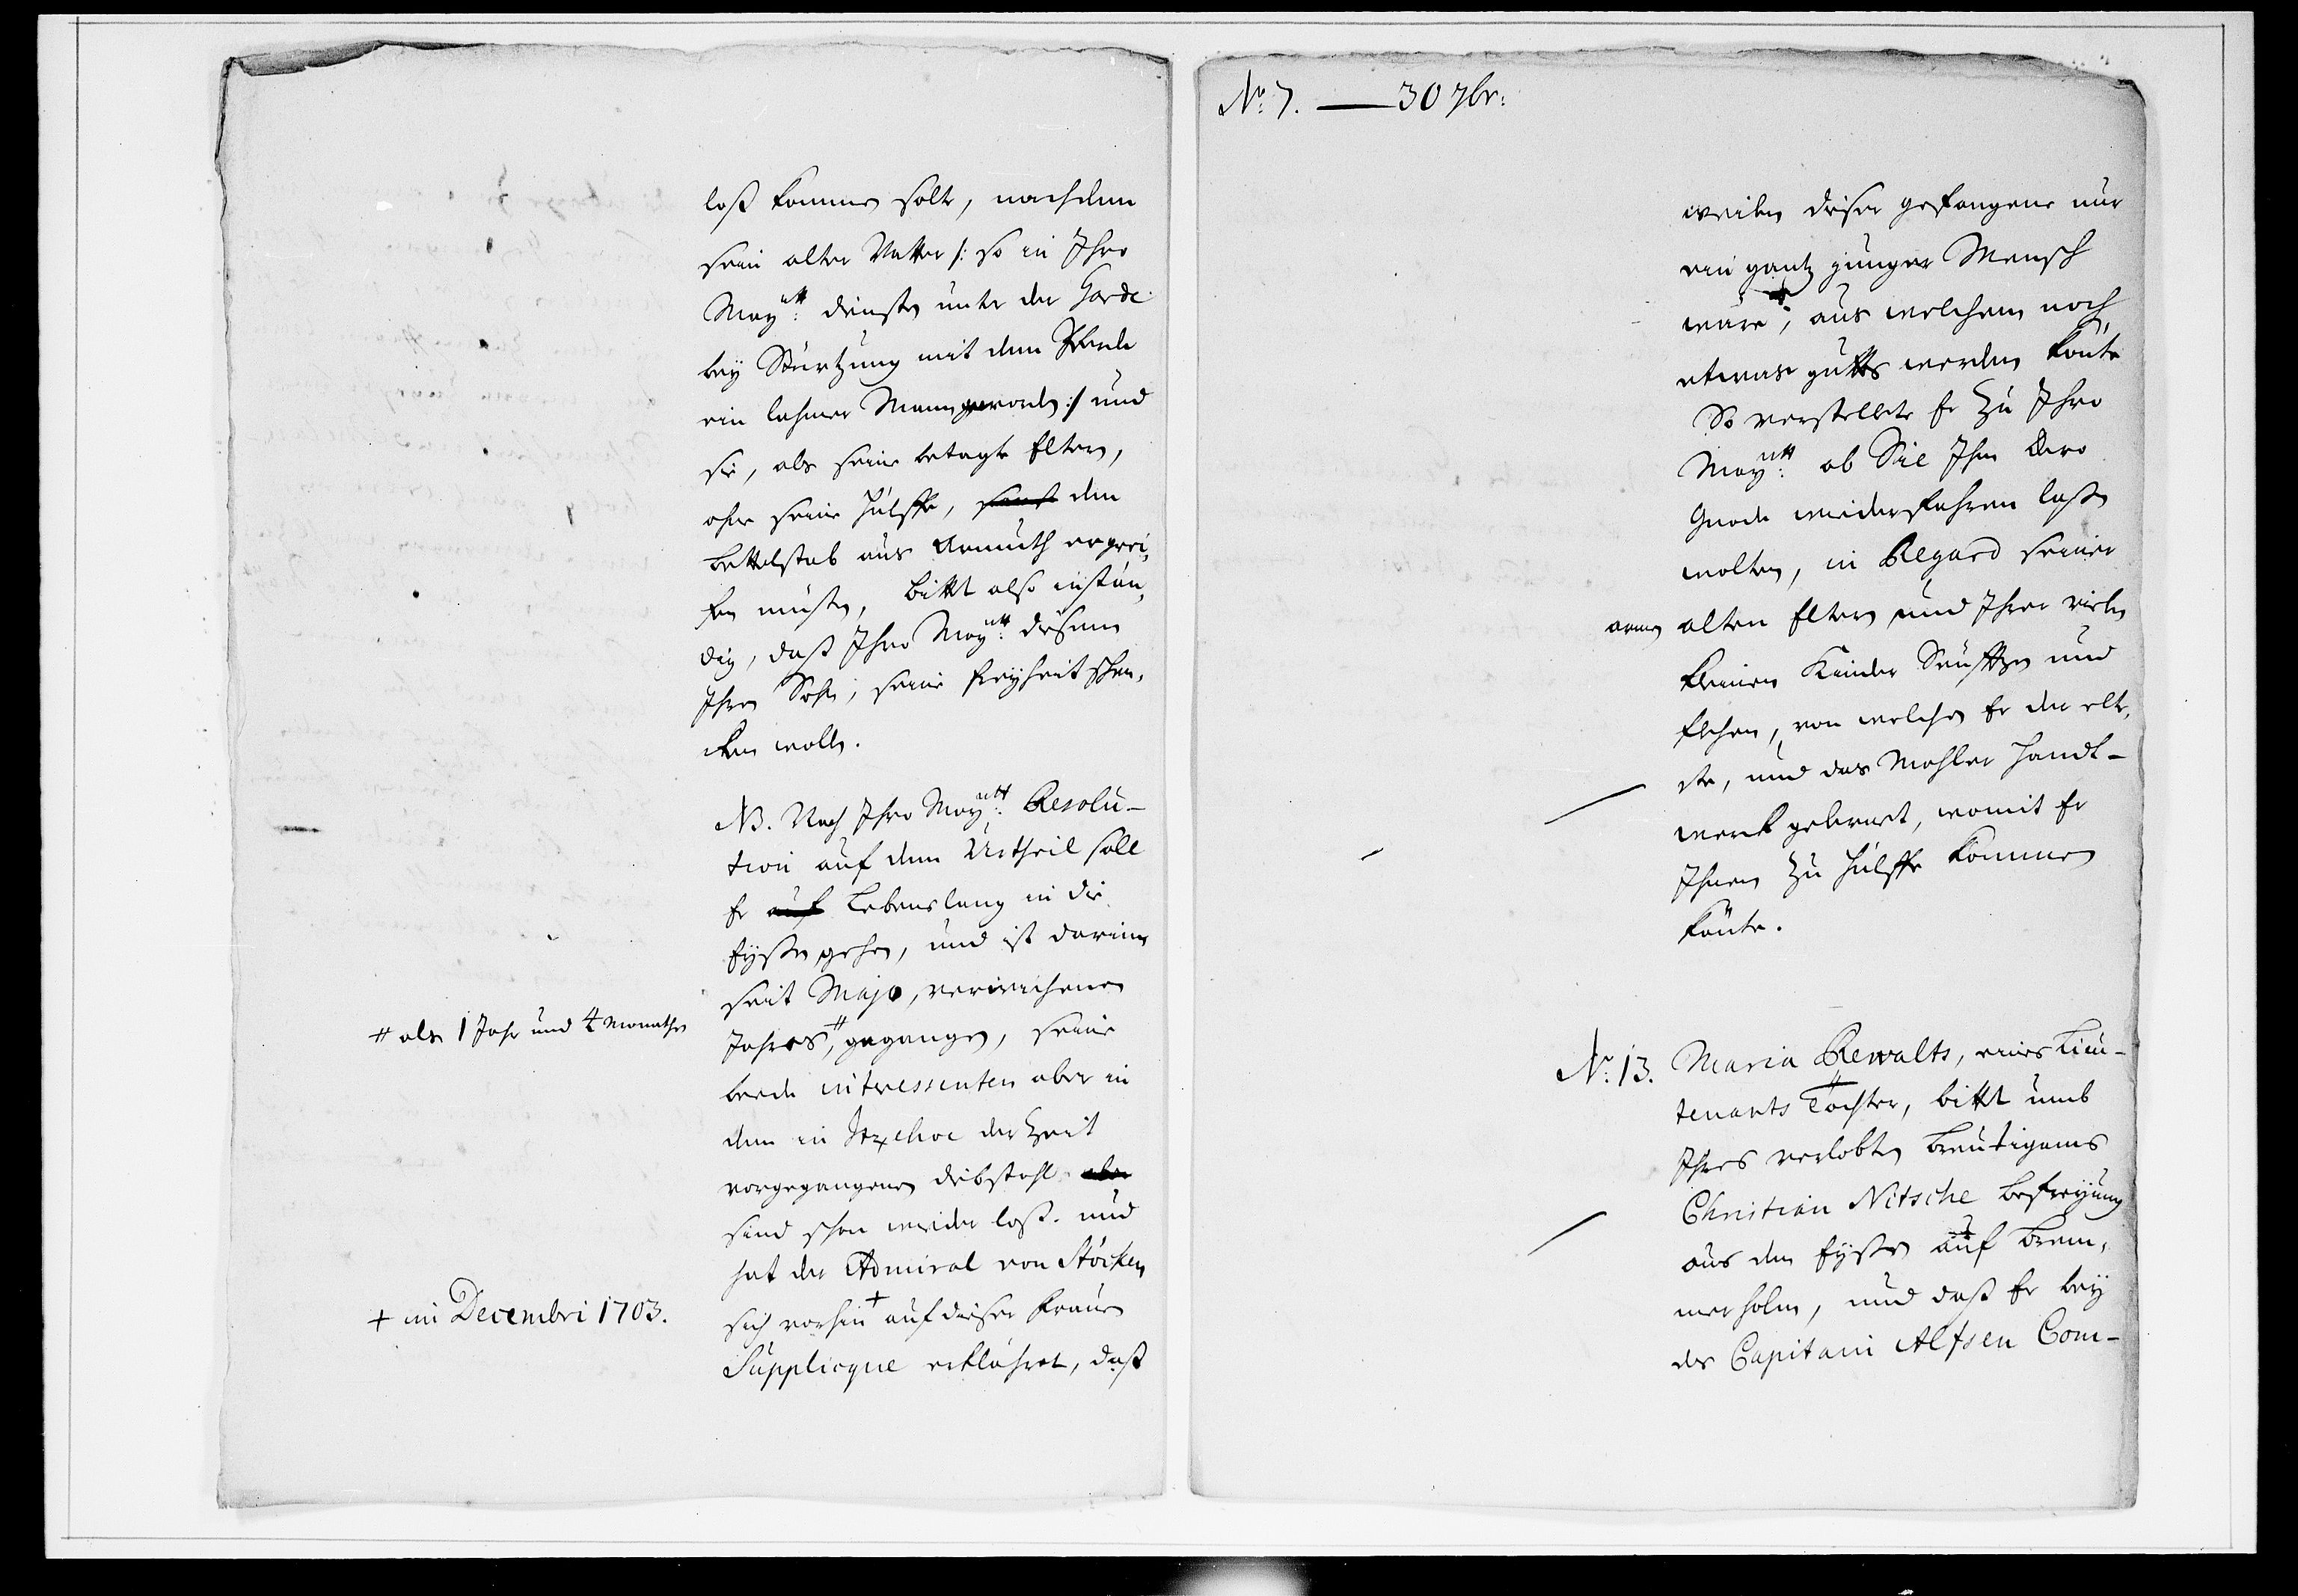 loß kommen solte, nachdem
sein alter Vatter /: so in Ihro
Mayᵗᵗ: dienste unter der Garde
bey Stürtzung mit dem Pferde
ein lahmer Mann geworden :/ und
sie, als seine betagte Eltern,
ohne seine Hülffe, sonst den
bettelstab aus Armuth ergrei,
fen müsten, bittet also instän,
dig, daß Ihro Mayᵗᵗ: diesem
Ihren Sohn, seine freyheit schen,
cken wolle.
NB. Nach Ihro Mayᵗᵗ: Resolu-
tion auf dem Urtheil soll
Er auf Lebenslang in die
Eysen gehen, und ist darinn
seit Majo, verwichenen
# als 1 Jahr und 4 Monathe
Jahres,# gegangen, seine
beede intressenten aber in
dem in Itzehoe der Zeit
vorgegangenen diebstahl aber
sind schon wieder loß. und
hat der Admiral von Stöcken
+ im Decembri 1703.
sich vorhin + auf dieser Frauen
Supplicque erklähret, daß
No: 7. — 30 7br:
weilen dieser gefangene nur
ein gantz junger Mensch
wäre, aus welchem noch
etwas gutes werden könte
So verstellete Er zu Ihro
Mayᵗᵗ: ob Sie Ihm Dero
Gnade wiederfahren laßen
wolten, in Regard seiner
armen alten Eltern und Ihrer vielen
kleinen Kinder Seufftzen und
flehen, von welchen Er der elte,
ste, und das Mahler Handt-
werck gelernet, womit Er
Ihnen zu Hülffe kommen
könte.
No: 13. Maria Rewalts, eines Lieu-
tenants Tochter, bittet umb
Ihres verlobten Breutigams
Christian Nitsche befreyung
aus den Eysen auf Brem,
merholm, und daß Er bey
des Capitain Alfsen Com-